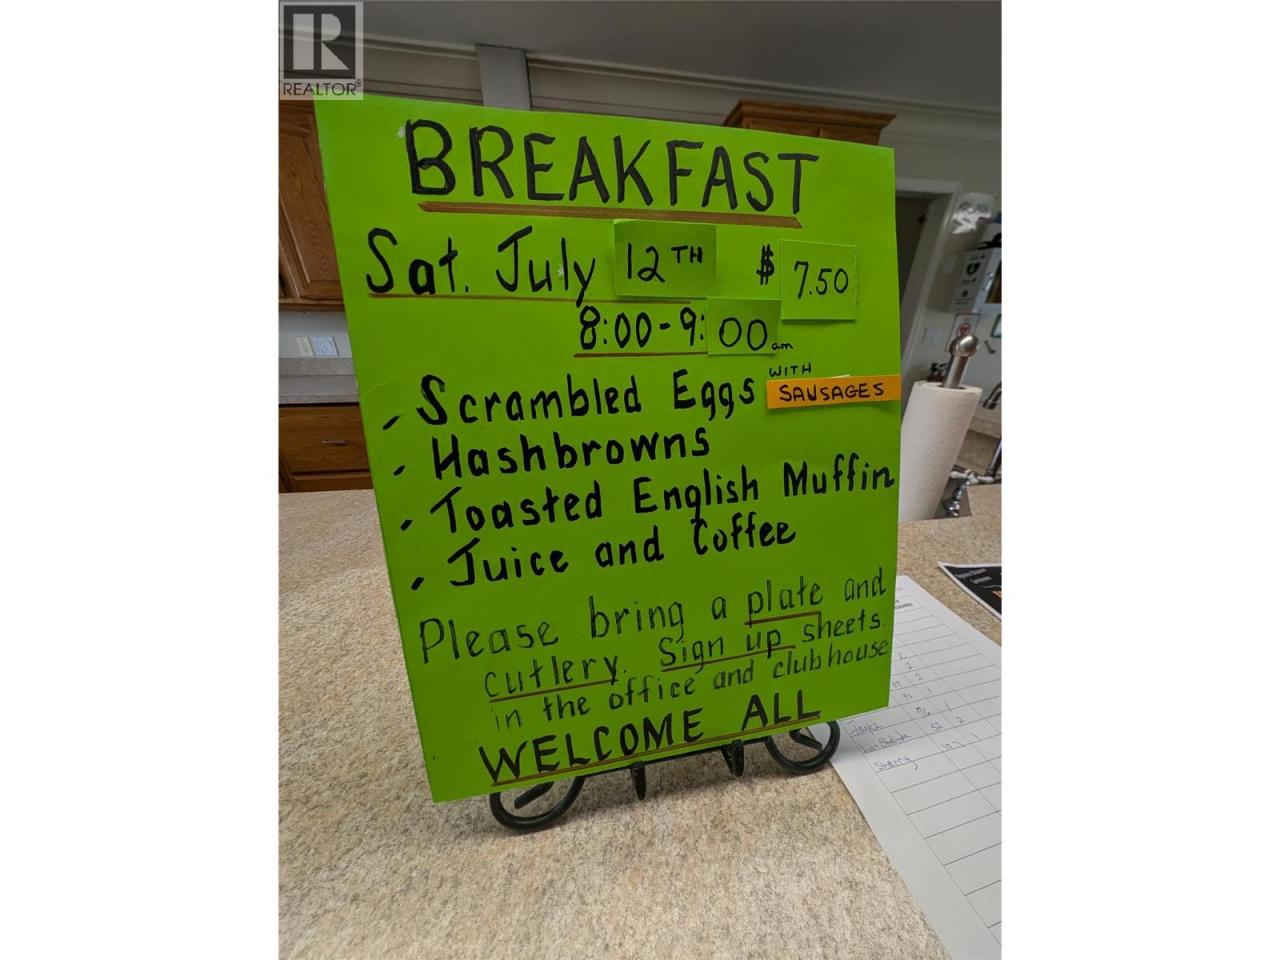 R
REALTOR®
BREAKFAST
Sat. July 12TH $ 7.50
8:00-9:00am
Scrambled Eggs WITH SAUSAGES
Hashbrowns
Toasted English Muffin
Juice and Coffee
Please bring a plate and
cutlery. Sign up sheets
in the office and clubhouse
WELCOME ALL
Joyce
Sherry